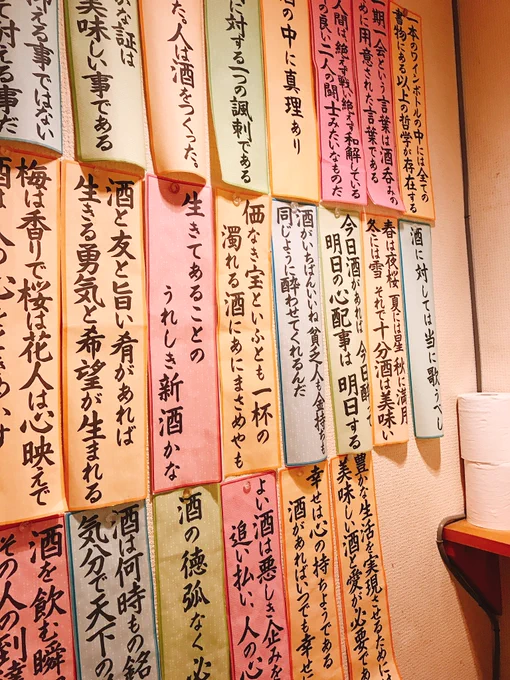 一本のワインボトルの中には全ての
書物にある以上の哲学が存在する
一期一会という言葉は酒呑みの
めに用意された言葉である
人間は絶えず戦い絶えず和解している
の良い二人の闘士みたいなものだ
の中に真理あり
に対する一つの諷刺である
た。人は酒をつくった。
かな証は
美味しい事である
抑える事ではない
耐える事だ
酒に対しては当に歌うべし
春は夜桜 夏には星 秋に満月
冬には雪 それで十分酒は美味い
今日酒があれば 今日酔って
明日の心配事は 明日する
酒がいちばんいいね 貧乏人も金持ちも
同じように酔わせてくれるんだ
価なき宝といふとも一杯の
濁れる酒にあにまさめやも
生きてあることの
うれしき新酒かな
酒と友と旨い肴があれば
生きる勇気と希望が生まれる
梅は香りで桜は花人は心映えで
豊かな生活を実現させるために
美味しい酒と愛が必要であ
幸せは心の持ちようである
酒があればいつでも幸せに
よい酒は悪しき企みを
追い払い、人の心
酒の徳孤なく必
酒は何時もの銘
気分で天下の
酒を飲む瞬
その人の到達